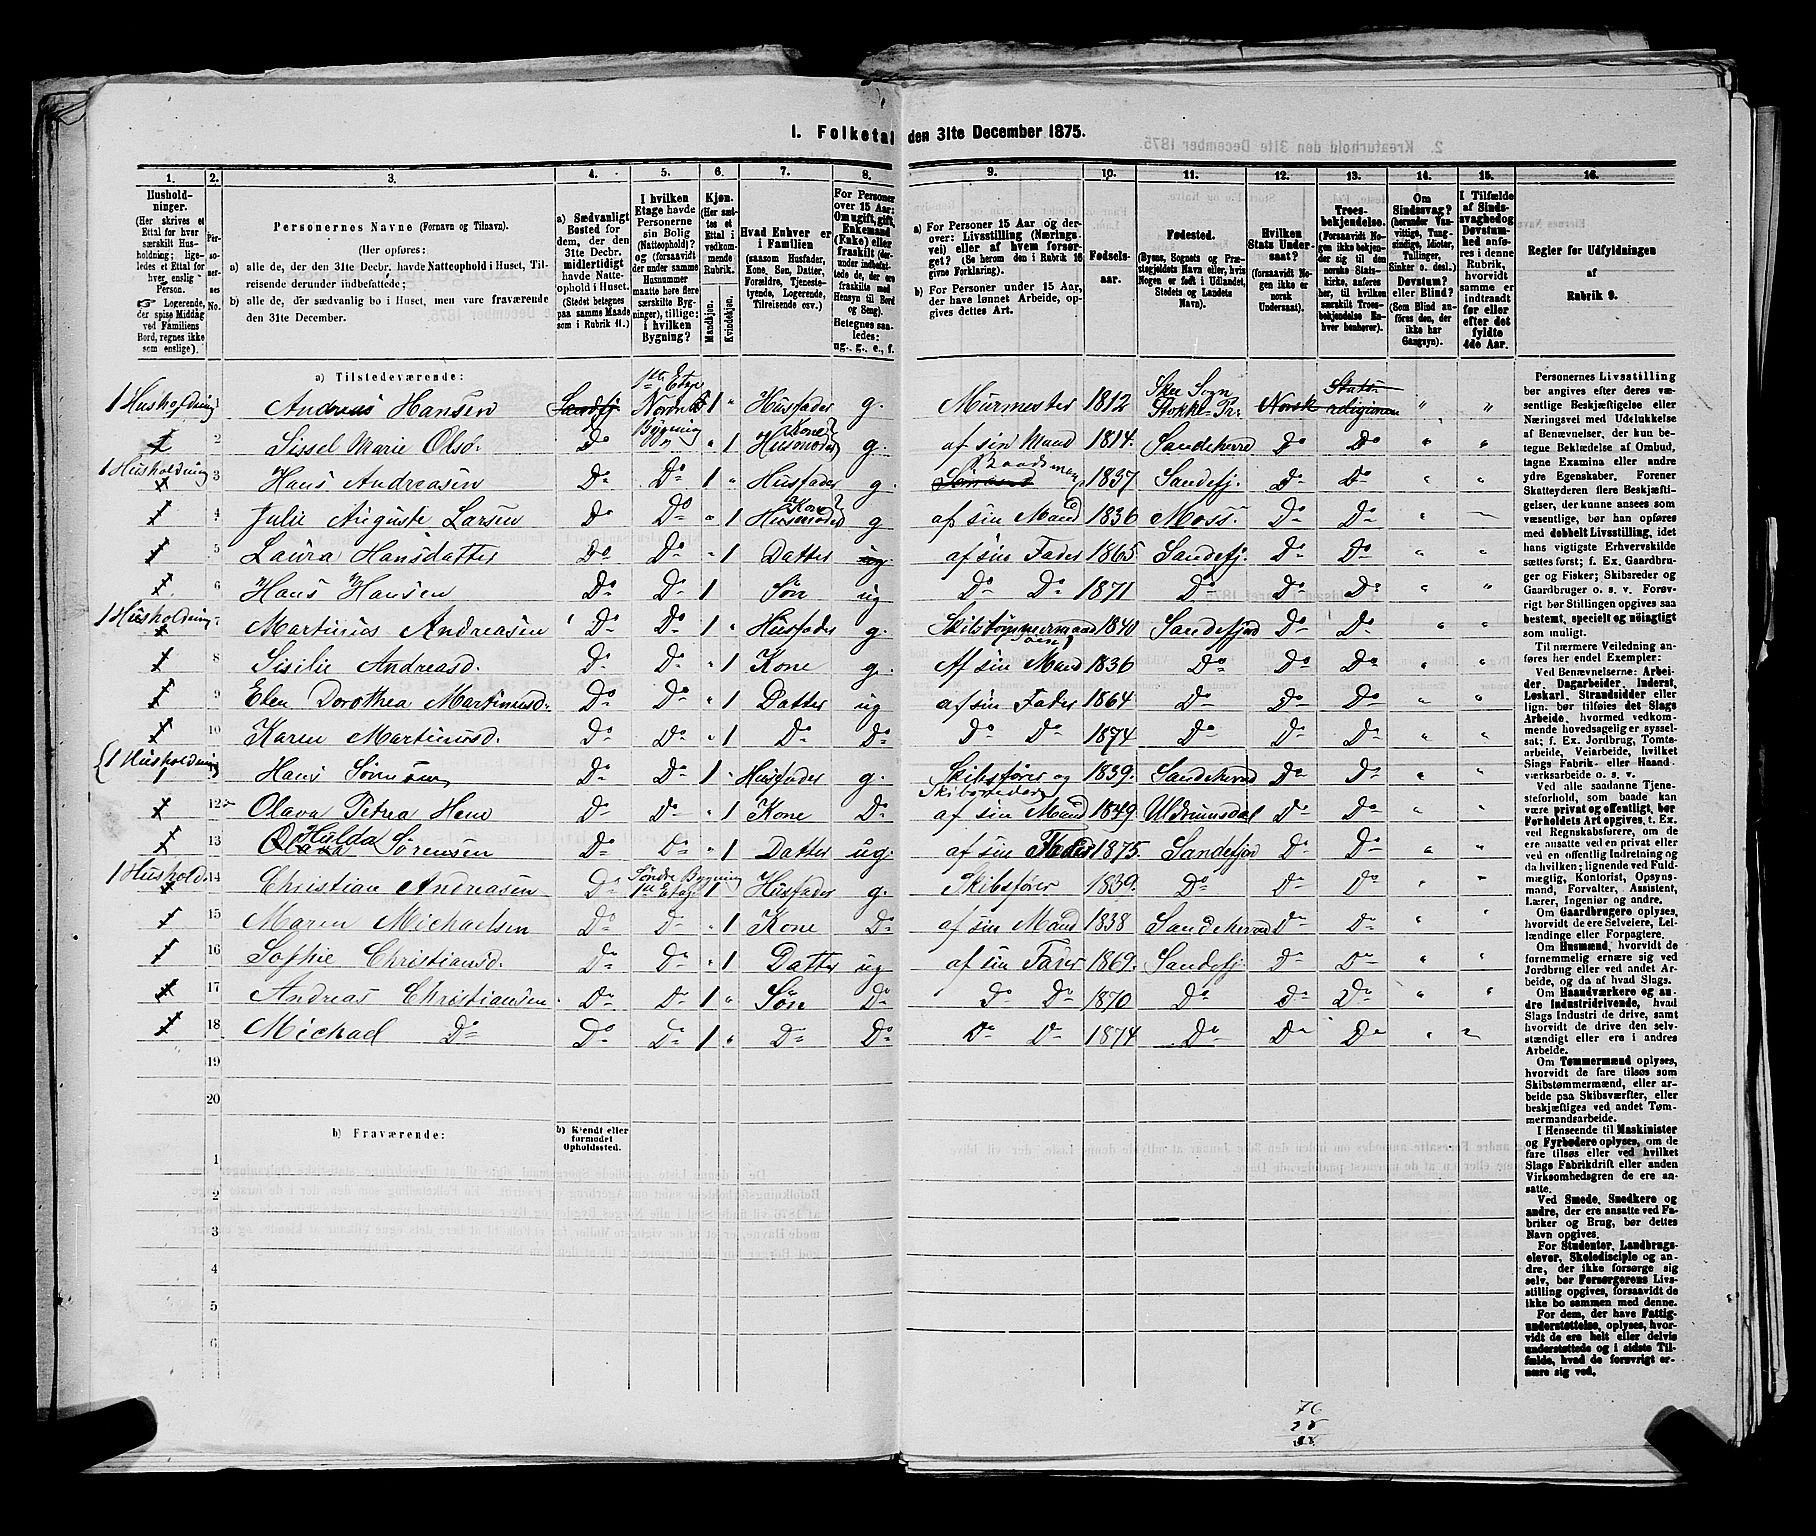 1. Folketal den 31te December 1875.
1. 2. 3. 4. 5. 6. 7. 8. 9. 10. 11. 12. 13. 14. 15. 16.
Hushold-
ninger.
(Her skrives et
Ettal for hver
særskilt Hus-
holdning; lige-
ledes et Ettal for
hver enslig
Person.
Logerende,
der spise Middag
ved Familiens
Bord, regnes ikke
som enslige).
Per-
so-
ner-
nes
No.
Personernes Navne (Fornavn og Tilnavn).
(Her opføres:
a) alle de, der den 31te Decbr. havde Natteophold i Huset, Til-
reisende derunder indbefattede;
b) alle de, der sædvanlig bo i Huset, men vare fraværende
den 31te December.
a) Sædvanligt
Bosted for
dem, der den
31te Decbr.
midlertidigt
havde Natte-
ophold i Huset.
(Stedet betegnes
paa samme Maade
som i Rubrik 11.)
I hvilken
Etage havde
Personerne
sin Bolig
(Natteophold)?
og (forsaavidt
der under samme
Husnummer
maatte høre flere
særskilte Byg-
ninger), tillige:
i hvilken
Bygning?
Kjøn.
(Her sæt-
tes et
Ettal i
vedkom-
mende
Rubrik.
Mandkjøn.
Kvindekjøn.
Hvad Enhver er
i Familien
(saasom Husfader,
Kone, Søn, Datter,
Forældre, Tjeneste-
tyende, Logerende,
Tilreisende osv.)
For Personer
over 15 Aar:
Om ugift, gift,
Enkemand
(Enke) eller
fraskilt (der-
under indbefat-
tede de, der ere
fraskilte med
Hensyn til Bord
og Seng).
Betegnes saa-
ledes:
ug., g., e., f.
a) For Personer 15 Aar og der-
over: Livsstilling (Nærings-
vei) eller af hvem forsør-
get? (Se herom den i Rubrik 16
givne Forklaring).
b) For Personer under 15 Aar,
der have lønnet Arbeide, op-
gives dettes Art.
Fødsels-
aar.
Fødested.
(Byens, Sognets og Præ-
stegjeldets Navn eller, hvis
Nogen er født i Udlandet,
Stedets og Landets
Navn).
Hvilken
Stats Under-
saat?
(forsaavidt No-
gen ikke er
norsk
Undersaat).
Troes-
bekjendelse.
(Forsaavidt No-
gen ikke bekjen-
der sig til den
norske Stats-
kirke, anføres
her, til hvilket
særskilt Troes-
bekjendelse En-
hver henhører).
Om
Sindssvag?
(herunder Van-
vittige, Tung-
sindige, Idioter,
Tullinger,
Sinker o. desl.)
Døvstum?
eller Blind?
(Som Blind an-
føres den, der
ikke har
Gangsyn).
I Tilfælde
af Sinds-
svaghed og
Døvstum-
hed anfø-
res i denne
Rubrik,
hvorvidt
samme er
indtraadt
før eller
efter det
fyldte
4de Aar.
Regler for Udfyldningen
af
Rubrik 9.
a) Tilstedeværende:
1 Husholdning 1 Andreas Hansen Sandefj. 1ste Etage Nordre Bygning 1 " Husfader g. Murmester 1812 Skee Sogn Stokke Pr. Norsk Stats religionen " "
1 2 Sissel Marie Olsd. Do " " 1 Husmoder Kone? g. af sin Mand 1814. Sandeherred Do Do " "
1 Husholdning 1 3 Hans Andreasen Do Do 1 " Husfader g. Baadsmand 1837 Sandefj. Do Do " "
1 4 Julie Auguste Larsen Do Do " 1 Husmoder Kone? g af sin Mand 1836 Moss Do Do " "
1 5 Laura Hansdatter Do Do " 1 Datter ug af sin Fader 1865 Sandefj. Do Do " "
1 6 Hans Hansen Do Do 1 Søn ug Do Do 1871 Do Do Do " "
1 Husholdning 1 7 Martinus Andreasen Do Do 1 " Husfader g. Skibstømmermand 1840 Sandefjord Do Do " "
1 8 Sisilie Andreasd. Do Do " 1 Kone g. Af sin Mand 1836 Do Do Do " "
1 9 Elen Dorothea Martinusd. Do Do " 1 Datter ug af sin Fader 1864 Do Do Do " "
1 10 Karen Martinusd. Do Do " 1 Do Do Do Do 1874 Do Do Do " "
1 Husholdning 1 Hans Sørensen Do Do 1 " Husfader g. Skibsfører og Skibsreder 1839. Sandeherred Do Do " "
1 12 Olava Petrea Hem Do Do " 1 Kone Do af sin Mand 1849. Uldrumsdal Do Do " "
1 13 Olava Hulda Sørensen Do Do " 1 Datter ug. af sin Fader 1875. Sandefjord Do Do " "
1 Hushold. 1 14 Christian Andreasen Do Søndre Bygning 1ste Etage 1 Husfader g. Skibsfører 1839. Do Do Do " "
1 15 Maren Michaelsen Do Do " 1 Kone Do af sin Mand 1838 Sandeherred Do Do " "
1 16 Sophie Christiansd. Do Do " 1 Datter ug af sin Fader 1869. Sandefj. Do Do " "
1 17 Andreas Christiansen Do Do 1 " Søn Do Do Do 1870 Do Do Do " "
1 18 Michael Do Do Do 1 " Do Do Do Do 1874 Do Do Do " "
19
20
b) Fraværende:
b) Kjendt eller
formodet
Opholdssted.
1
2
3
4
5
6
Personernes Livsstilling
bør angives efter deres væ-
sentlige Beskjæftigelse eller
Næringsvei med Udelukkelse
af Benævnelser, der kun be-
tegne Beklædelse af Ombud,
tagne Examina eller andre
ydre Egenskaber. Forener
Skatteyderen flere Beskjæfti-
gelser, der kunne ansees som
væsentlige, bør han opføres
med dobbelt Livsstilling, idet
hans vigtigste Erhvervskilde
sættes først; f. Ex. Gaardbru-
ger og Fisker; Skibsreder og
Gaardbruger o. s. v. Forøv-
rigt bør Stillingen opgives saa
bestemt, specielt og nøiagtigt
som muligt.
Til nærmere Veiledning an-
føres her endel Exempler:
Ved Benævnelserne: Arbei-
der, Dagarbeider, Inderst,
Løskarl, Strandsidder eller
lign. bør tilføies det Slags
Arbeide, hvormed vedkom-
mende hovedsagelig er syssel-
sat; f. Ex. Jordbrug, Tomte-
arbeide, Veiarbeide, hvilket
Slags Fabrik- eller Haand-
værksarbeide o. s. v.
Ved alle saadanne Tjene-
steforhold, som baade kan
være privat og offentligt, bør
Forholdets Art opgives, t. Ex.
ved Regnskabsførere, om de
ere ansatte ved en privat eller
ved en offentlig Indretning og
da hvilken; lignende ved Fuld-
mægtig, Kontorist, Opsyns-
mand, Forvalter, Assistent,
Lærer, Ingeniør og andre.
Om Gaardbrugere oplyses,
hvorvidt de ere Selveiere, Lei-
lændinge eller Forpagtere.
Om Husmænd, hvorvidt de
fornemmelig ernære sig ved
Jordbrug eller ved andet Ar-
beide, og da af hvad Slags.
Om Haandværkere og an-
dre Industridrivende, hvad
Slags Industri de drive, samt
hvorvidt de drive den selv-
stændigt eller ere i andres
Arbeide.
Om Tømmermænd oplyses,
hvorvidt de fare tilsøs som
Skibstømmermænd, eller ar-
beide paa Skibsværfter, eller
beskjæftiges ved andet Tøm-
mermandsarbeide.
I Henseende til Maskinister
og Fyrbødere oplyses, om de
fare tilsøs eller ved hvilket
Slags Fabrikdrift eller anden
Virksomhedsgren de ere an-
satte.
Ved Smede, Snedkere og
andre, der ere ansatte ved Fa-
briker og Brug, bør dettes
Navn opgives.
For Studenter, Landbrugs-
elever, Skoledisciple og an-
dre, der ikke forsørge sig
selv, bør Forsørgerens Livs-
stilling opgives, forsaavidt de
ikke bo sammen med denne.
For dem, der have Fattig-
understøttelse, oplyses, hvor-
vidt de ere helt eller delvis
understøttede og i sidste Til-
fælde, hvad de forøvrigt er-
nære sig ved.
76